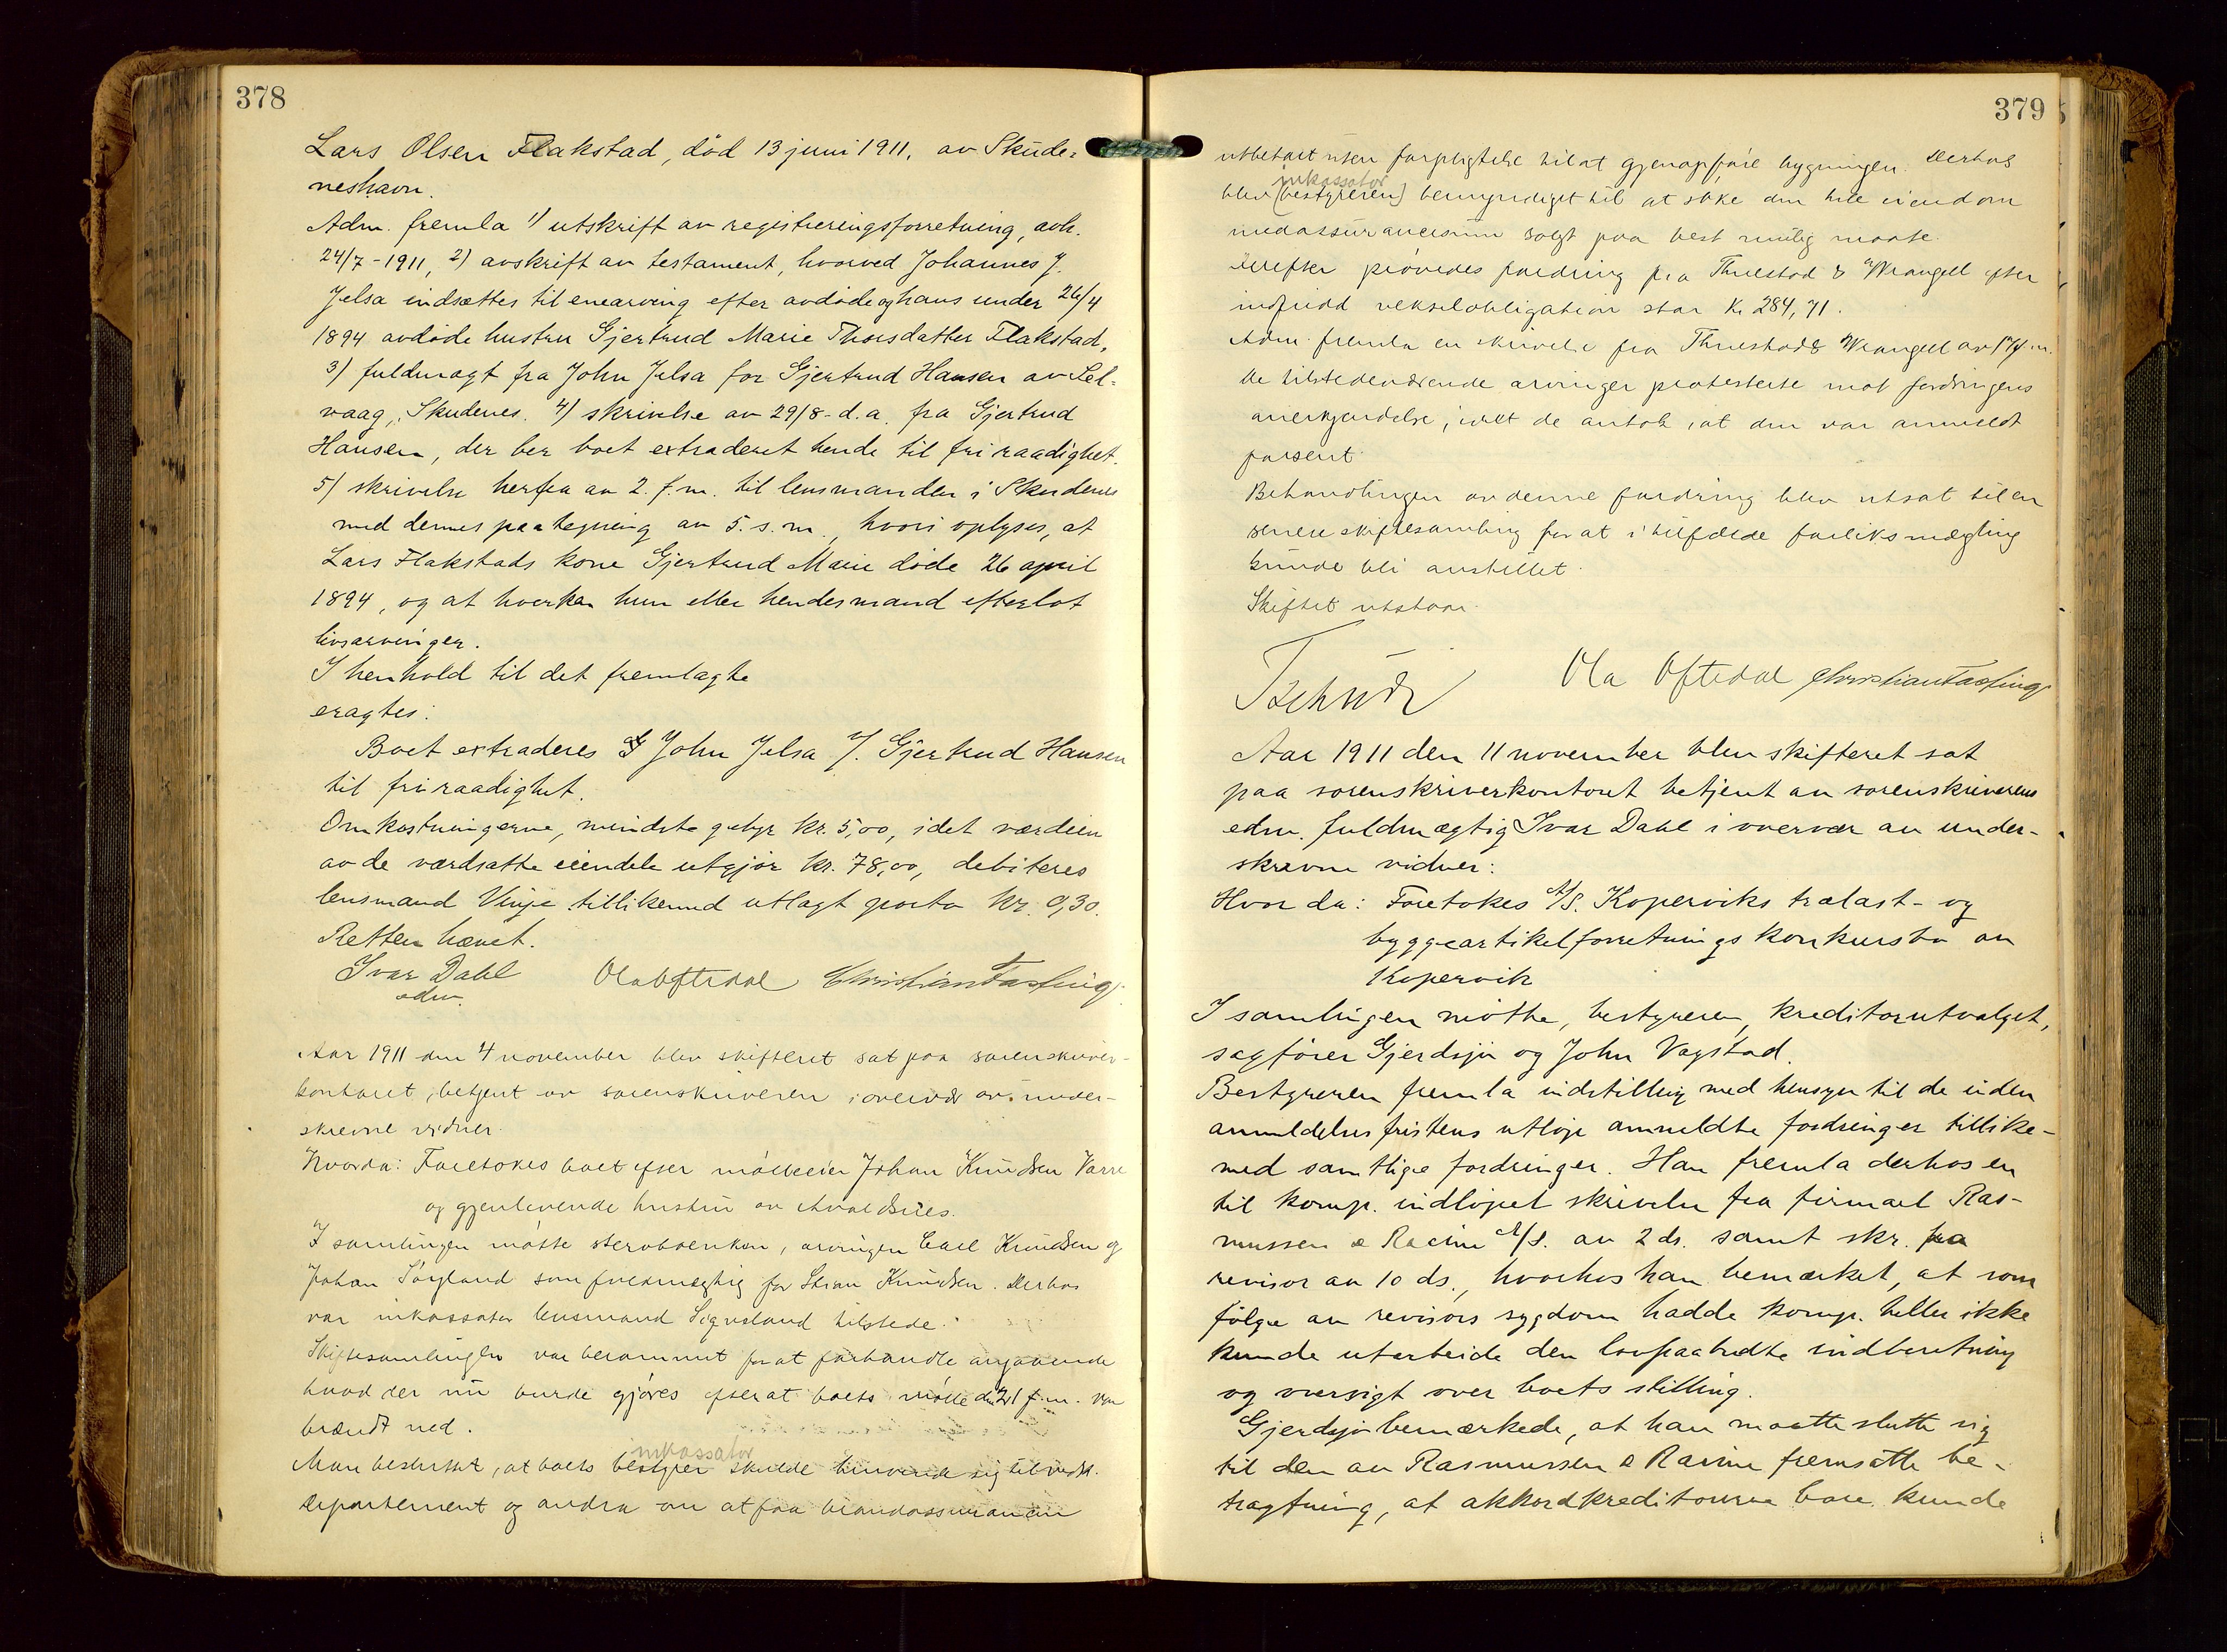 378
Lars Olsen Flakstad, død 13 juni 1911, av Skude-
neshavn.
Adm. fremla 1) utskrift av registreringsforretning, avh.
24/7-1911, 2) avskrift av testament, hvorved Johannes J.
Jelsa indsættes til enearving efter avdøde og hans under 26/4
1894 avdøde hustru Gjertrud Marie Thorsdatter Flakstad,
3) fuldmagt fra John Jelsa for Gjertrud Hansen av Sel-
vaag, Skudenes. 4) skrivelse av 29/8-d.a. fra Gjertrud
Hansen, der ber boet extraderet hende til fri raadighet.
5) skrivelse herfra av 2. f.m. til lensmanden i Skudenes
med dennes paategning av 5. s.m., hvori oplyses, at
Lars Flakstads kone Gjertrud Marie døde 26 april
1894, og at hverken hun eller hendes mand efterlot
livsarvinger.
I henhold til det fremlagte
eragtes:
Boet extraderes John Jelsa v/. Gjertrud Hansen
til fri raadighet.
Omkostningerne, mindste gebyr kr. 5,00, idet værdien
av de værdsatte eiendele utgjør kr. 78,00, debiteres
lensmand Vinje tillikemed utlagt porto kr. 0,30.
Retten hævet.
Ivar Dahl Ola Oftedal Christian Fasting
edsv.
Aar 1911 den 4 november blev skifteret sat paa sorenskriver-
kontoret, betjent av sorenskriveren i overvær av under-
skrevne vidner.
Hvorda: Foretokes boet efter mølleeier Johan Knudsen Varre
og gjenlevende hustru av Avaldsnes.
I samlingen møtte sterboenken, arvingen Carl Knudsen og
Johan Sørland som fuldmægtig for Knudsen. Derhos
var inkassator lensmand Signsland tilstede.
Skiftesamlingen var berammet for at forhandle angaaende
hvad der nu burde gjøres efterat boets mølle den 21 f.m. var
brændt ned.
inkassator
Man besluttet, at boets bestyrer skulde henvende sig til vedk.
Departement og andra om at faa brandassurancen
379
utbetalt uten forpligtelse til at gjenopføre bygningen. Derhos
inkassator
blev (bestyreren) bemyndiget til at søke den hele eiendom
med assurancesum solgt paa best mulig maate.
Derefter prøvedes fordring fra Thuestad & Wrangell efter
indfridd vekselobligation stor kr 284,71.
Adm. fremla en skrivelse fra Thuestad & Wrangell av
De tilstedeværende arvinger protesterte mot fordringens
anerkjendelse, idet de antok, at den var anmeldt
forsent.
Behandlingen av denne fordring blev utsat til en
senere skiftesamling for at i tilfælde forliksmægling
kunde bli anstillet.
Skiftet utstaar.
Tschudi Ola Oftedal Christian Fasting
Aar 1911 den 11 november blev skifteret sat
paa sorenskriverkontoret betjent av sorenskriverens
edsv. fuldmægtig Ivar Dahl i overvær av under-
skrevne vidner:
Hvor da: Foretokes A/S. Koperviks trælast- og
byggeartikelforretnings konkursbo av
Kopervik
I samlingen møtte, bestyreren, kreditorutvalget,
sagfører Gjerdsjø og John Vagstad.
Bestyreren fremla indstilling med hensyn til de inden
anmeldelsesfristens utløp anmeldte fordringer tillike-
med samtlige fordringer. Han fremla derhos en
til komp. indløpet skrivelse fra firmaet Ras-
mussen & Racine A/S. av 2 ds. samt skr. fra
revisor av 10 ds., hvorhos han bemærket, at som
følge av revisors sygdom hadde komp. heller ikke
kunde utarbeide den lovpaabudte indberetning
og oversigt over boets stilling.
Gjerdsjø bemærkede, at han maatte slutte sig
til den av Rasmussen & Racine fremsatte be-
tragtning, at akkordkreditorerne bare kunde